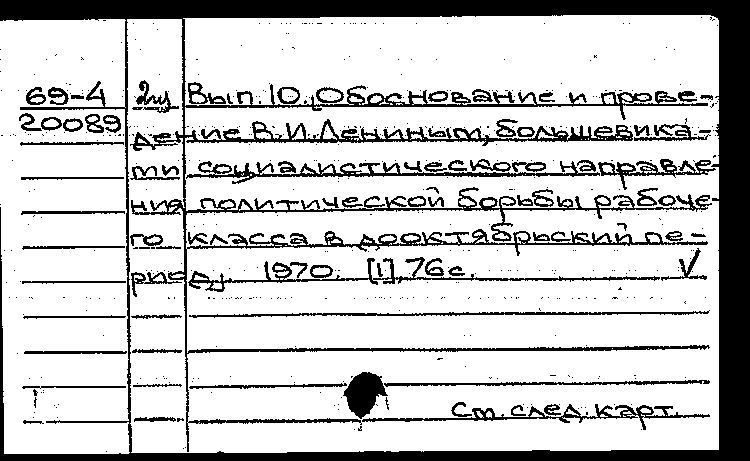 69-4 2щ Вып. 10. [Обоснование и прове-
20089 дение В.И.Лениным, большевика-
ми социалистического направле-
ния политической борьбы рабоче-
го класса в дооктябрьский пе-
риод]. 1970. [1], 76 с. V
См. след. карт.